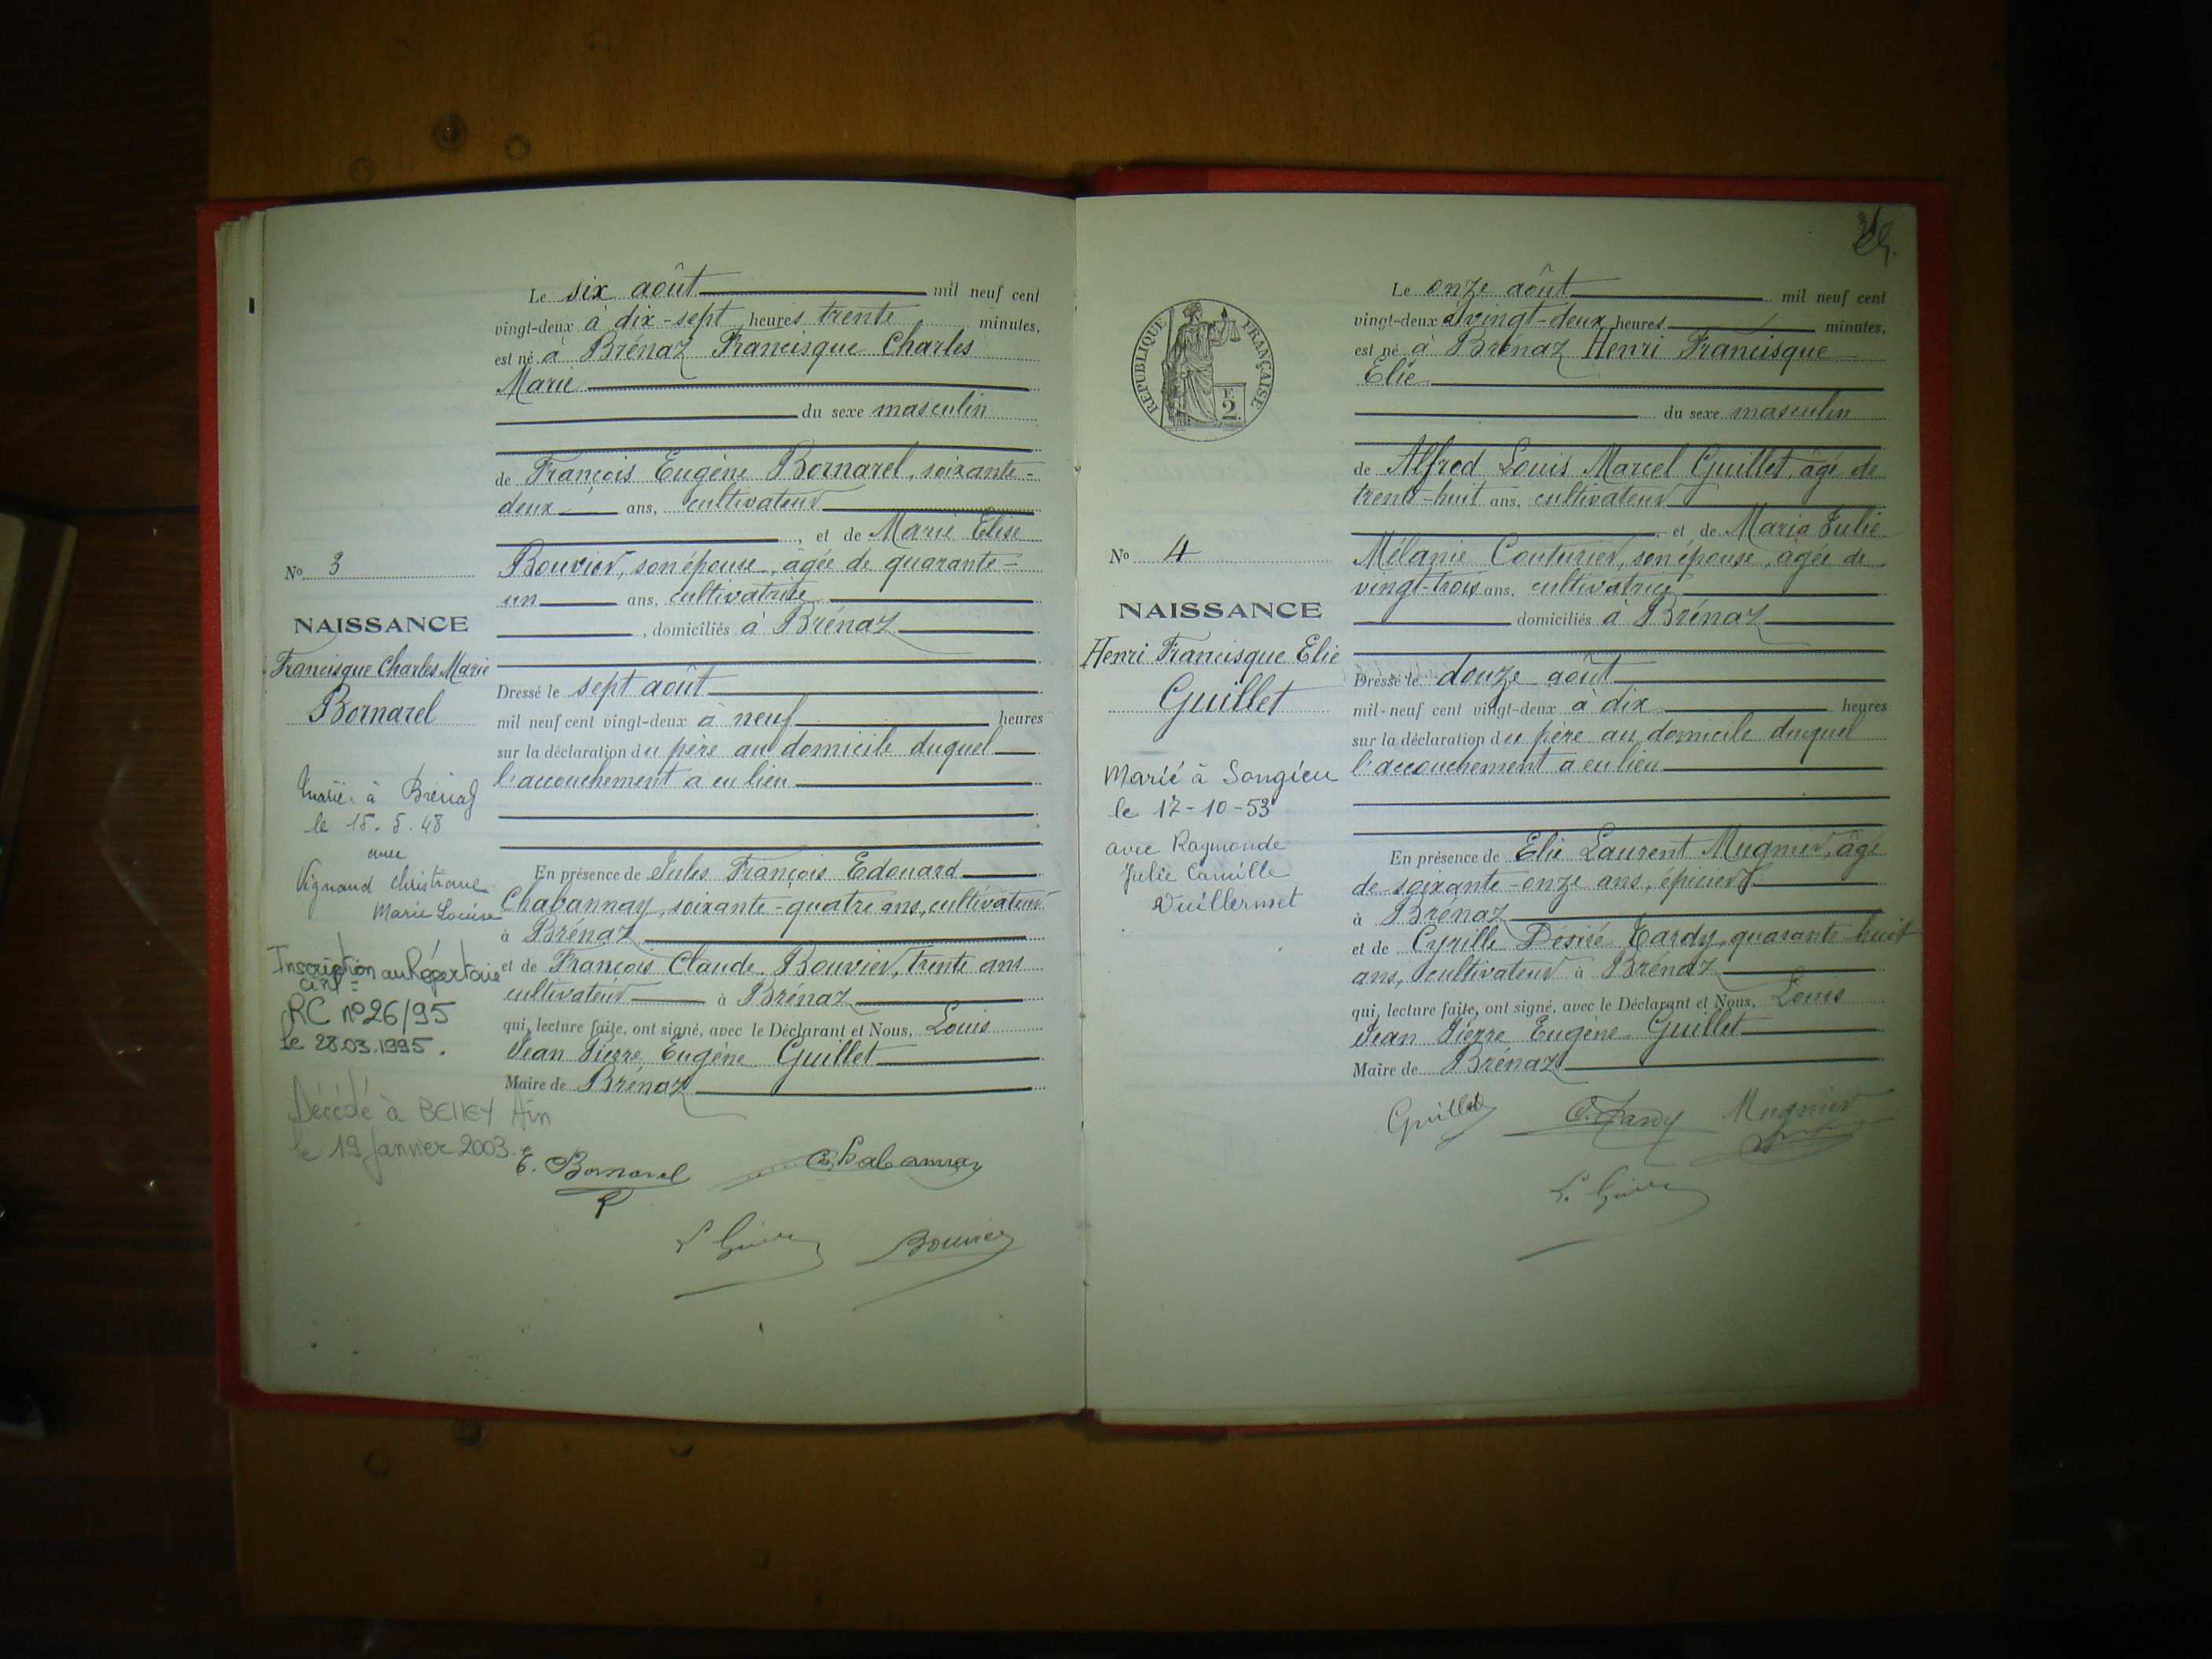 Le six août mil neuf cent
vingt-deux à dix-sept heures trente minutes,
est né à Brénaz Francisque Charles
Marie
du sexe masculin
de François Eugène Bornarel, soixante-
deux ans, cultivateur
, et de Marie Elise
Bouvier, son épouse, âgée de quarante-
un ans, cultivatrice
, domiciliés à Brénaz
Dressé le sept août
mil neuf cent vingt-deux à neuf heures
sur la déclaration du père au domicile duquel
l'accouchement a eu lieu
En présence de Jules François Edouard
Chabannay, soixante-quatre ans, cultivateur
à Brénaz
et de François Claude Bouvier, trente ans
cultivateur à Brénaz
qui, lecture faite, ont signé, avec le Déclarant et Nous, Louis
Jean Pierre Eugène Guillet
Maire de Brénaz
E. Bornarel Chabannay
Bouvier
No 3
NAISSANCE
Francisque Charles Marie
Bornarel
Marié à Brénaz
le 15.5.48
avec
Vignaud Christiane
Marie Louise
Inscription au Répertoire
civil
RC n°26/95
le 28.03.1995.
Décédé à BELLEY Ain
le 19 Janvier 2003.
RÉPUBLIQUE FRANÇAISE
E
2
No 4
NAISSANCE
Henri Francisque Elie
Guillet
Marié à Songieu
le 17-10-53
avec Raymonde
Julie Camille
Vuillermet
Le onze août mil neuf cent
vingt-deux à vingt-deux heures minutes,
est né à Brénaz Henri Francisque
Elie
du sexe masculin
de Alfred Louis Marcel Guillet, âgé de
trente-huit ans, cultivateur
, et de Maria Julie
Mélanie Couturier, son épouse, âgée de
vingt-trois ans, cultivatrice
domiciliés à Brénaz
Dressé le douze août
mil neuf cent vingt-deux à dix heures
sur la déclaration du père au domicile duquel
l'accouchement a eu lieu
En présence de Elie Laurent Mugnier, âgé
de soixante-onze ans, épicier
à Brénaz
et de Cyrille Désiré Tardy, quarante-huit
ans, cultivateur à Brénaz
qui, lecture faite, ont signé, avec le Déclarant et Nous, Louis
Jean Pierre Eugène Guillet
Maire de Brénaz
Guillet C. Tardy Mugnier